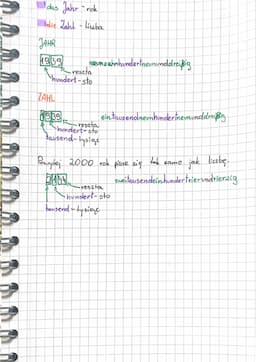 das Jahr - rok
die Zahl - liczba
JAHR
1939 neunzehnhundertneununddreißig
reszta
hundert - sto
ZAHL
1939 eintausendneunhundertneununddreißig
reszta
hundert - sto
tausend - tysiąc
Powyżej 2000 rok pisze się tak samo jak liczbę.
2144 zweitausendeinhundertvierundvierzig
reszta
hundert - sto
tausend - tysiąc